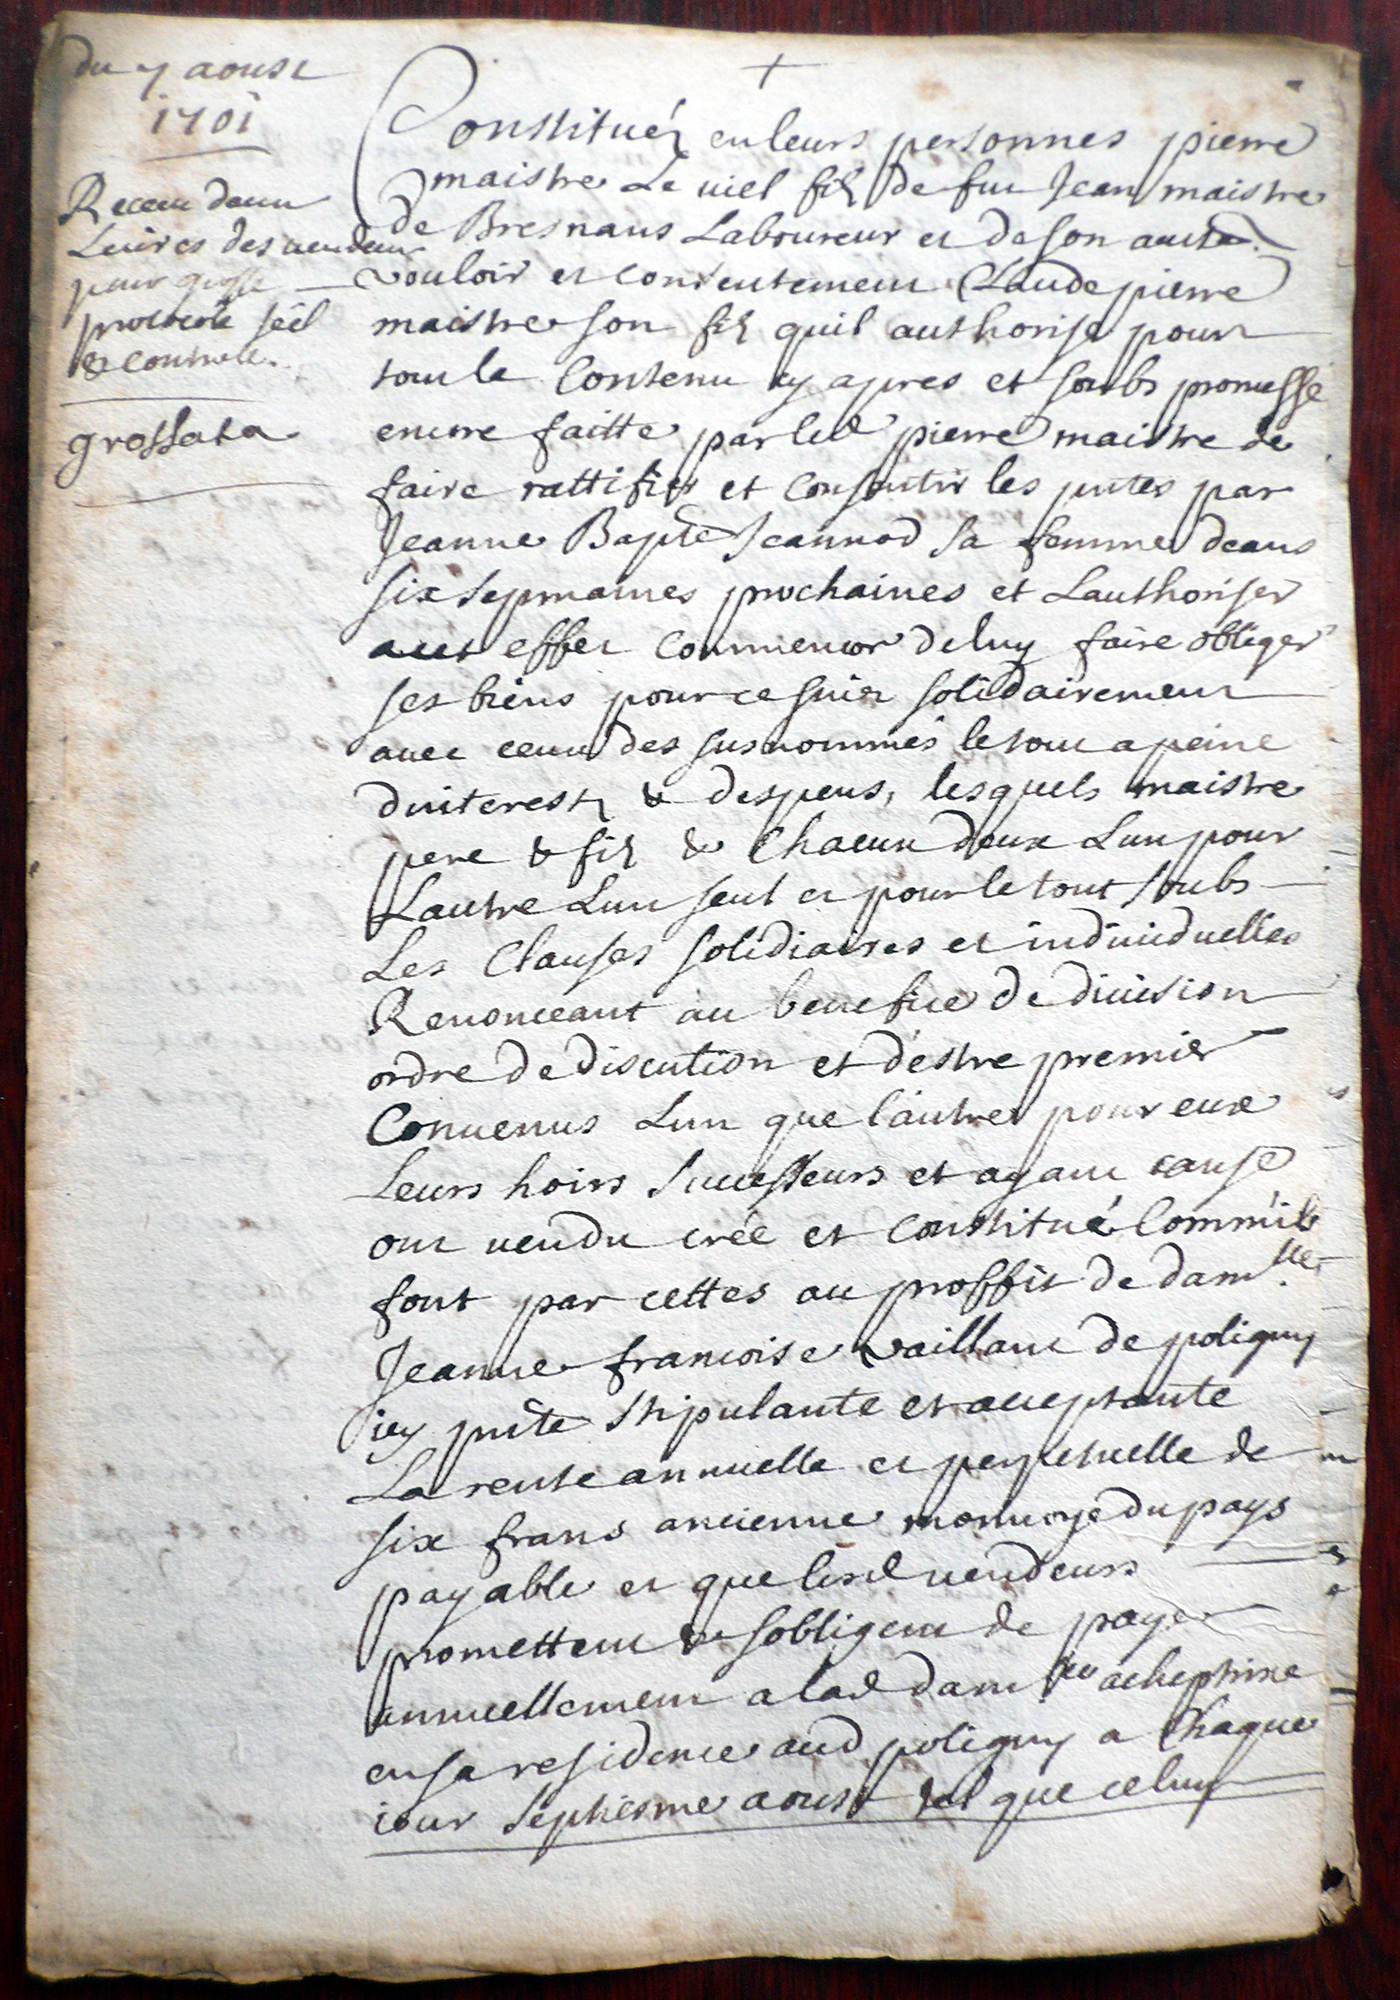 du 7 aoust
1701
Receu deux
Livres des vendeurs
pour grosse
protocole seel
& controle.
grossata
Constituéz en leurs personnes pierre
maistre Le viel filz de fut Jean maistre
de Bresnans Laboureur et de son aucté
vouloir et consentement Claude pierre
maistre son filz quil authorise pour
tout le contenu cy apres et soubs promesse
encore faitte par led pierre maistre de
faire rattifier et consentir les pntes par
Jeanne Bapte Jeannod sa femme dans
six sepmaines prochaines et Lauthoriser
a cet effet comme encor de luy faire obliger
ses biens pour ce suiet solidairement
avec ceux des susnommés le tout a peine
dinterestz & despens, lesquels maistre
pere & filz & Chacun deux Lun pour
Lautre Lun seul et pour le tout soubs
Les Clauses solidiaires et individuelles
Renonceant au benefice de division
ordre de discution et destre premier
Convenus Lun que lautre pour eux
Leurs hoirs successeurs et ayant cause
ont vendu creé et constitué Comm'ils
font par cettes au proffit de dam.lle
Jeanne francoise vaillant de poligny
icy pnte stipulante et acceptante
La rente annuelle et perpetuelle de
six frans ancienne monnoye du pays
payable et que lesd vendeurs
promettent & sobligent de payer
annuellement a lad dam.lle acheptrice
en sa residence aud poligny a Chaque
iour septiesme aoust tel que celuy